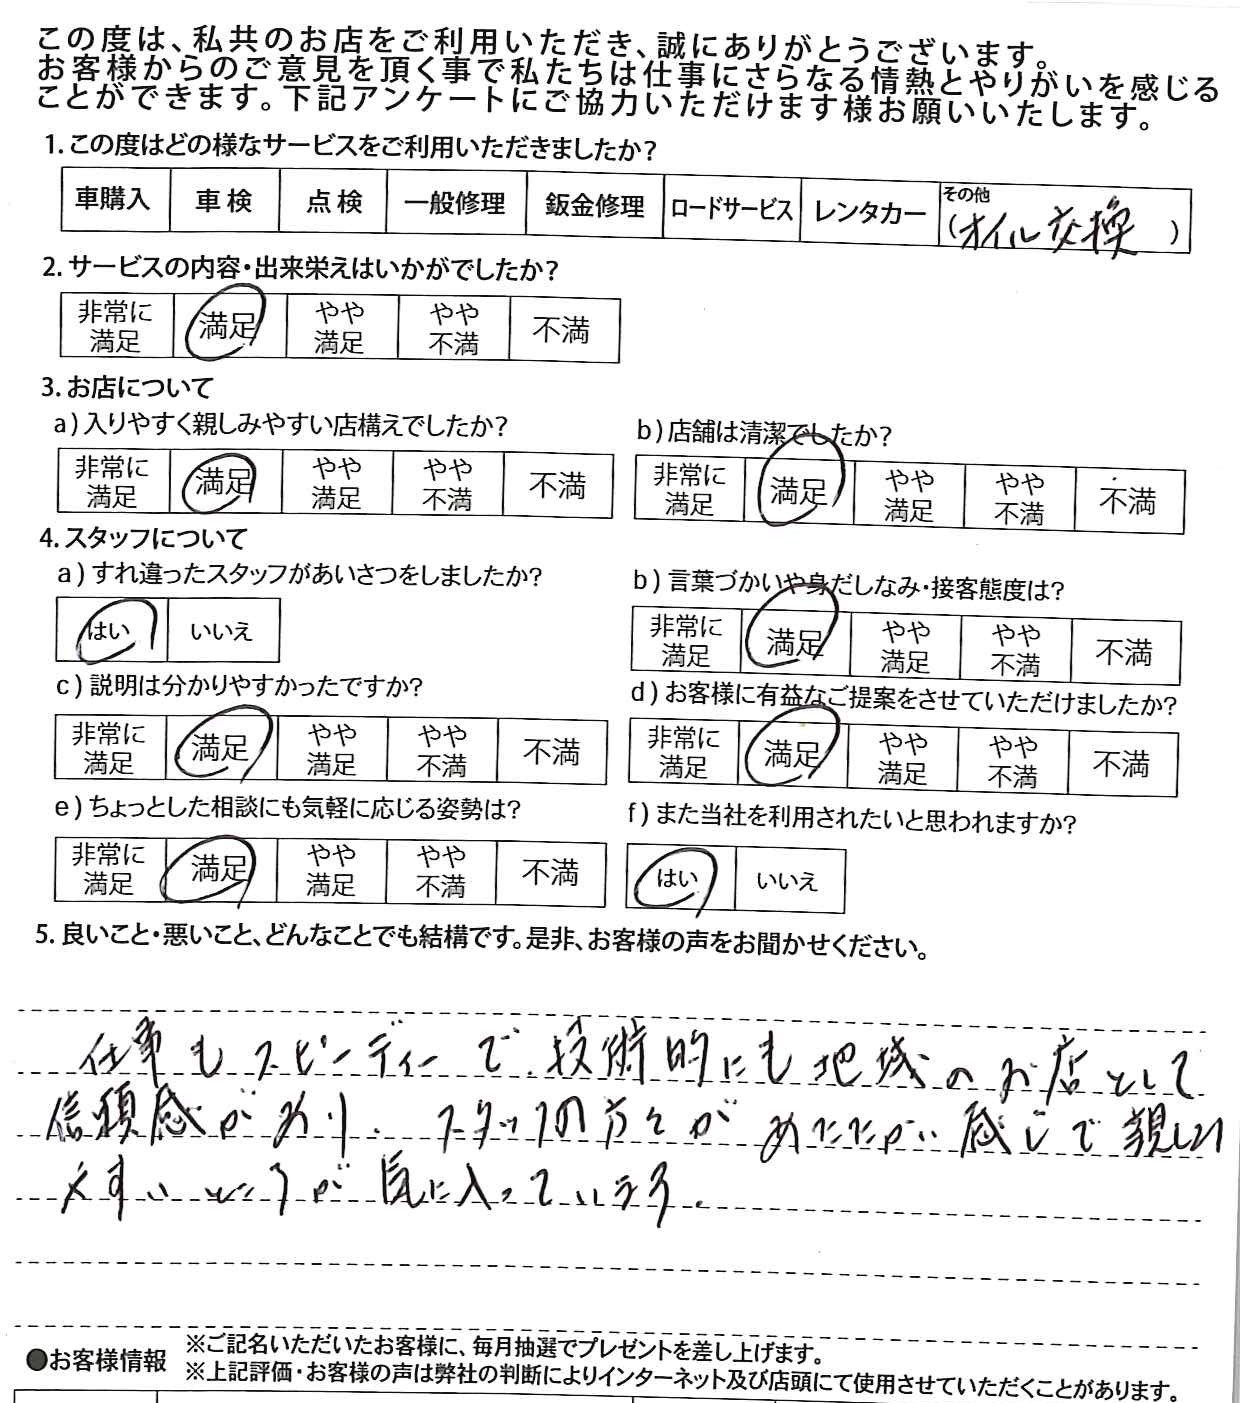 この度は、私共のお店をご利用いただき、誠にありがとうございます。
お客様からのご意見を頂く事で私たちは仕事にさらなる情熱とやりがいを感じる
ことができます。下記アンケートにご協力いただけます様お願いいたします。
1. この度はどの様なサービスをご利用いただきましたか?
車購入 車検 点検 一般修理 鈑金修理 ロードサービス レンタカー その他
(オイル交換)
2. サービスの内容・出来栄えはいかがでしたか?
非常に満足 満足 やや満足 やや不満 不満
3. お店について
a) 入りやすく親しみやすい店構えでしたか?
非常に満足 満足 やや満足 やや不満 不満
b) 店舗は清潔でしたか?
非常に満足 満足 やや満足 やや不満 不満
4. スタッフについて
a) すれ違ったスタッフがあいさつをしましたか?
はい いいえ
b) 言葉づかいや身だしなみ・接客態度は?
非常に満足 満足 やや満足 やや不満 不満
c) 説明は分かりやすかったですか?
非常に満足 満足 やや満足 やや不満 不満
d) お客様に有益なご提案をさせていただけましたか?
非常に満足 満足 やや満足 やや不満 不満
e) ちょっとした相談にも気軽に応じる姿勢は?
非常に満足 満足 やや満足 やや不満 不満
f) また当社を利用されたいと思われますか?
はい いいえ
5. 良いこと・悪いこと、どんなことでも結構です。是非、お客様の声をお聞かせください。
仕事もスピーディーで、技術的にも地域のお店として
信頼感があり、スタッフの方々があたたかい感じで親しみ
やすいところが気に入っています。
●お客様情報 ※ご記名いただいたお客様に、毎月抽選でプレゼントを差し上げます。
※上記評価・お客様の声は弊社の判断によりインターネット及び店頭にて使用させていただくことがあります。